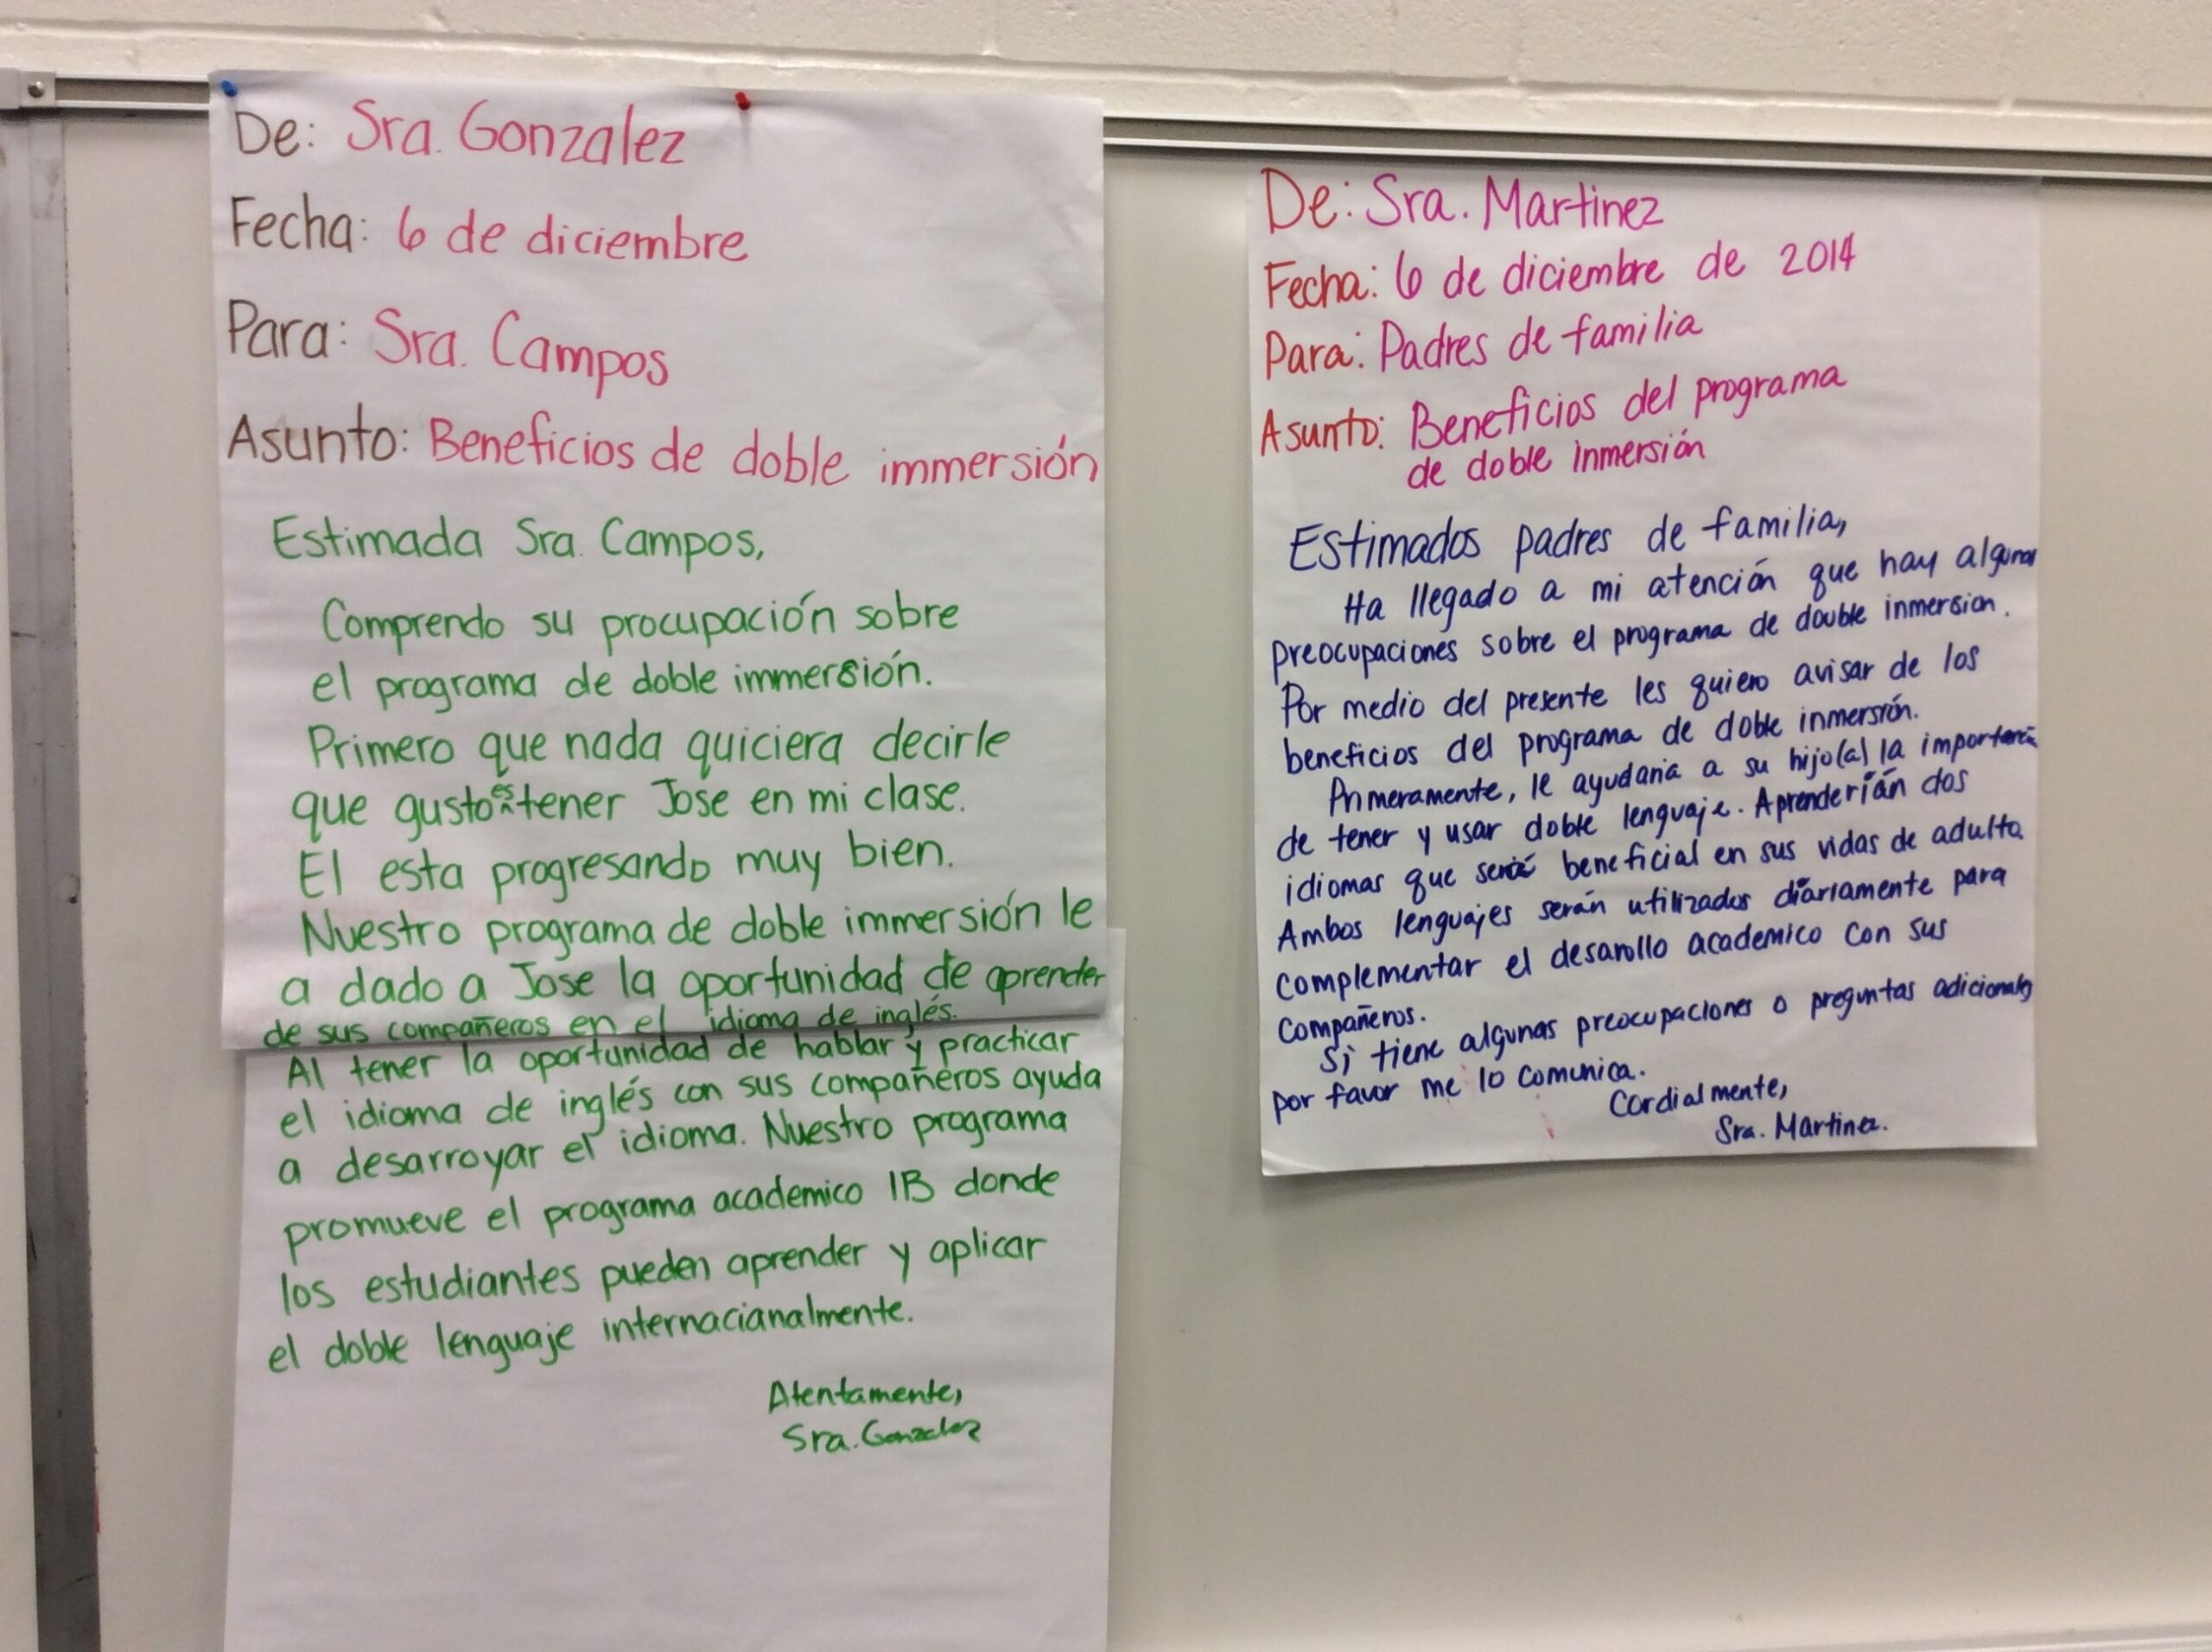 De: Sra. Gonzalez
Fecha: 6 de diciembre
Para: Sra. Campos
Asunto: Beneficios de doble immersión
Estimada Sra. Campos,
Comprendo su procupación sobre
el programa de doble immersión.
Primero que nada quiciera decirle
que gusto es tener Jose en mi clase.
El esta progresando muy bien.
Nuestro programa de doble immersión le
a dado a Jose la oportunidad de aprender
de sus compañeros en el idioma de inglés.
Al tener la oportunidad de hablar y practicar
el idioma de inglés con sus compañeros ayuda
a desarroyar el idioma. Nuestro programa
promueve el programa academico IB donde
los estudiantes pueden aprender y aplicar
el doble lenguaje internacianalmente.
Atentamente,
Sra. Gonzalez
De: Sra. Martinez
Fecha: 6 de diciembre de 2014
Para: Padres de familia
Asunto: Beneficios del programa
de doble inmersión
Estimados padres de familia,
Ha llegado a mi atención que hay algunas
preocupaciones sobre el programa de double inmersion.
Por medio del presente les quiero avisar de los
beneficios del programa de doble inmersión.
Primeramente, le ayudaria a su hijo(a) la importancia
de tener y usar doble lenguaje. Aprenderián dos
idiomas que será beneficial en sus vidas de adulto.
Ambos lenguajes serán utilizados diariamente para
complementar el desarollo academico con sus
compañeros.
Si tiene algunas preocupaciones o preguntas adicionales
por favor me lo comunica.
Cordialmente,
Sra. Martinez.